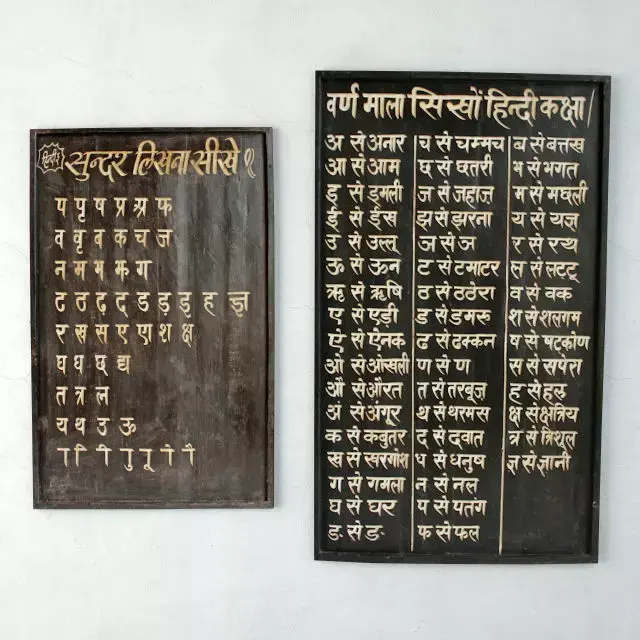 हिन्दी
सुन्दर लिखना सीखे १
प पृ ष प्र श्र फ
व वृ व क च ज
न म भ झ ग
ट ठ द द ड ड़ इ ह ज्ञ
र ख स ए ण श क्ष
घ ध छ द्य
त त्र ल
य थ उ ऊ
ा ि ी ु ू ो ौ
वर्ण माला सिखों हिन्दी कक्षा /
अ से अनार
आ से आम
इ से इमली
ई से ईस
उ से उल्लू
ऊ से ऊन
ऋ से ऋषि
ए से एड़ी
ऐ से ऐनक
ओ से ओखली
औ से औरत
अं से अंगूर
क से कबुतर
ख से खरगोश
ग से गमला
घ से घर
ङ से ङ
च से चम्मच
छ से छतरी
ज से जहाज
झ से झरना
ञ से ञ
ट से टमाटर
ठ से ठठेरा
ड से डमरू
ढ से ढक्कन
ण से ण
त से तरबूज
थ से थरमस
द से दवात
ध से धनुष
न से नल
प से पतंग
फ से फल
ब से बत्तख
भ से भगत
म से मछली
य से यज्ञ
र से रथ
ल से लटटू
व से वक
श से शलगम
ष से षटकोण
स से सपेरा
ह से हल
क्ष से क्षत्रिय
त्र से त्रिशूल
ज्ञ से ज्ञानी